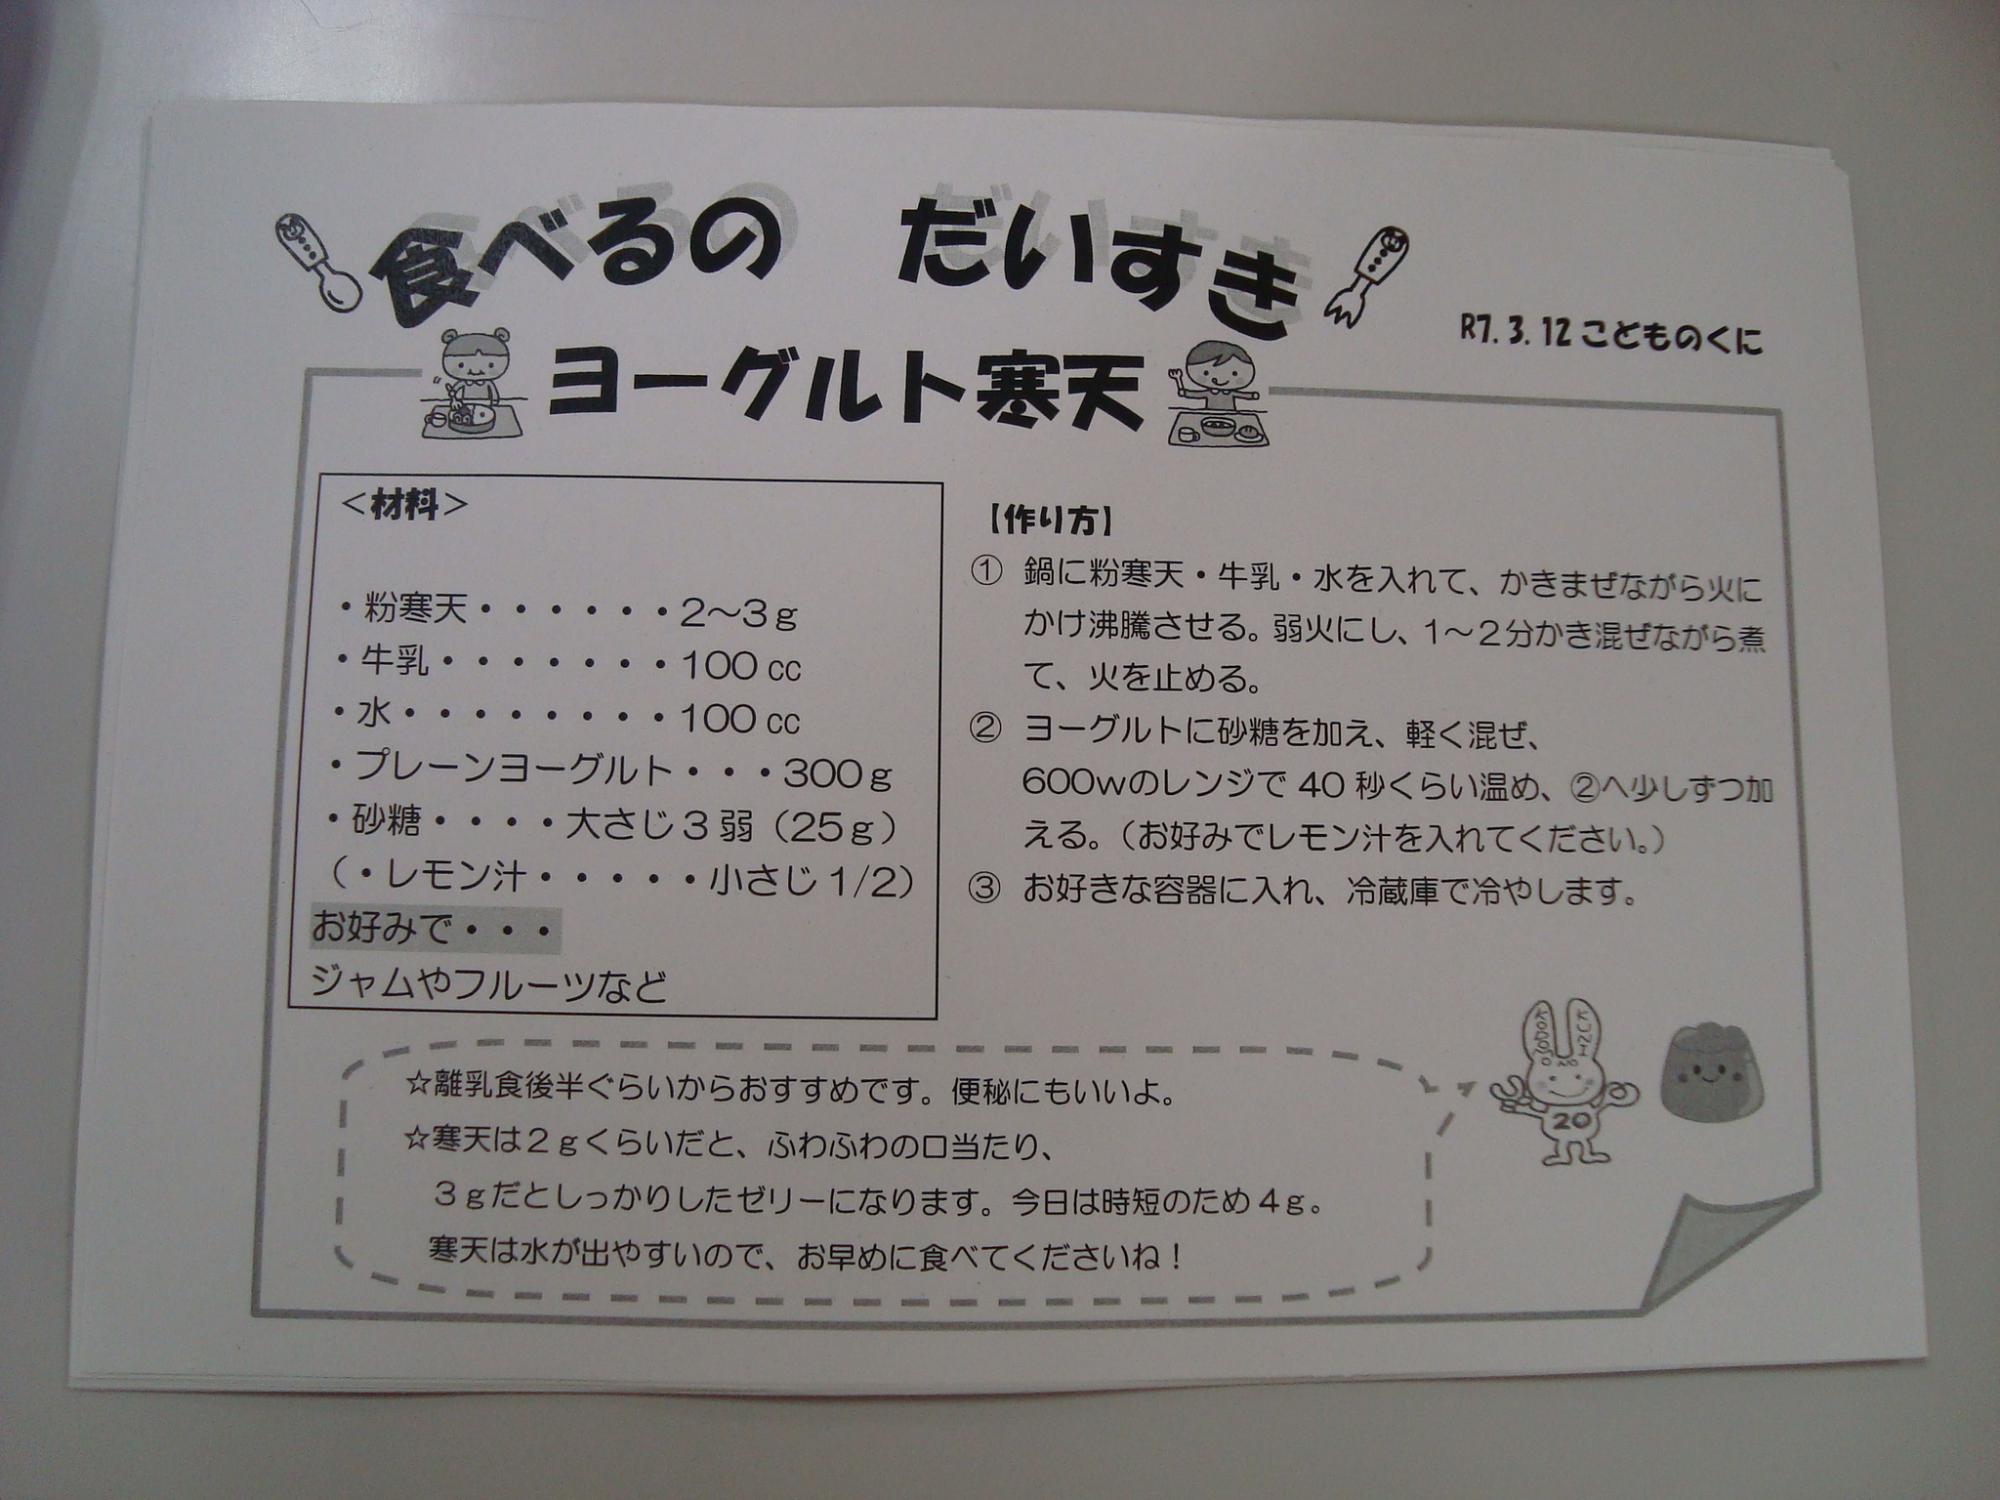 食べるの　だいすき
R7.3.12こどものくに
ヨーグルト寒天
＜材料＞
・粉寒天・・・・・・2～3g
・牛乳・・・・・・・100cc
・水・・・・・・・・100cc
・プレーンヨーグルト・・・300g
・砂糖・・・・大さじ3弱（25g）
（・レモン汁・・・・・小さじ1/2）
お好みで・・・
ジャムやフルーツなど
【作り方】
① 鍋に粉寒天・牛乳・水を入れて、かきまぜながら火に
かけ沸騰させる。弱火にし、1～2分かき混ぜながら煮
て、火を止める。
② ヨーグルトに砂糖を加え、軽く混ぜ、
600wのレンジで40秒くらい温め、②へ少しずつ加
える。（お好みでレモン汁を入れてください。）
③ お好きな容器に入れ、冷蔵庫で冷やします。
☆離乳食後半ぐらいからおすすめです。便秘にもいいよ。
☆寒天は2gくらいだと、ふわふわの口当たり、
3gだとしっかりしたゼリーになります。今日は時短のため4g。
寒天は水が出やすいので、お早めに食べてくださいね！
KODOMO
NO
KUNI
20